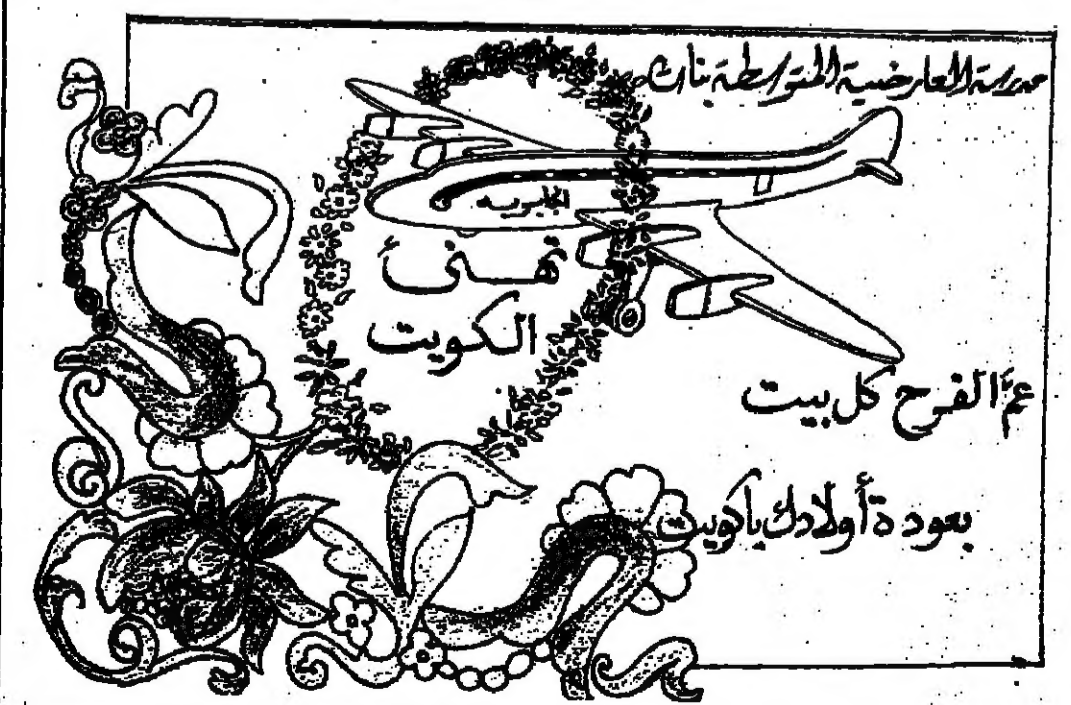 مدرسة العارضية المتوسطة بنات
الجابرية
تهنئ
الكويت
عمَّ الفرح كل بيت
بعودة أولادك ياكويت